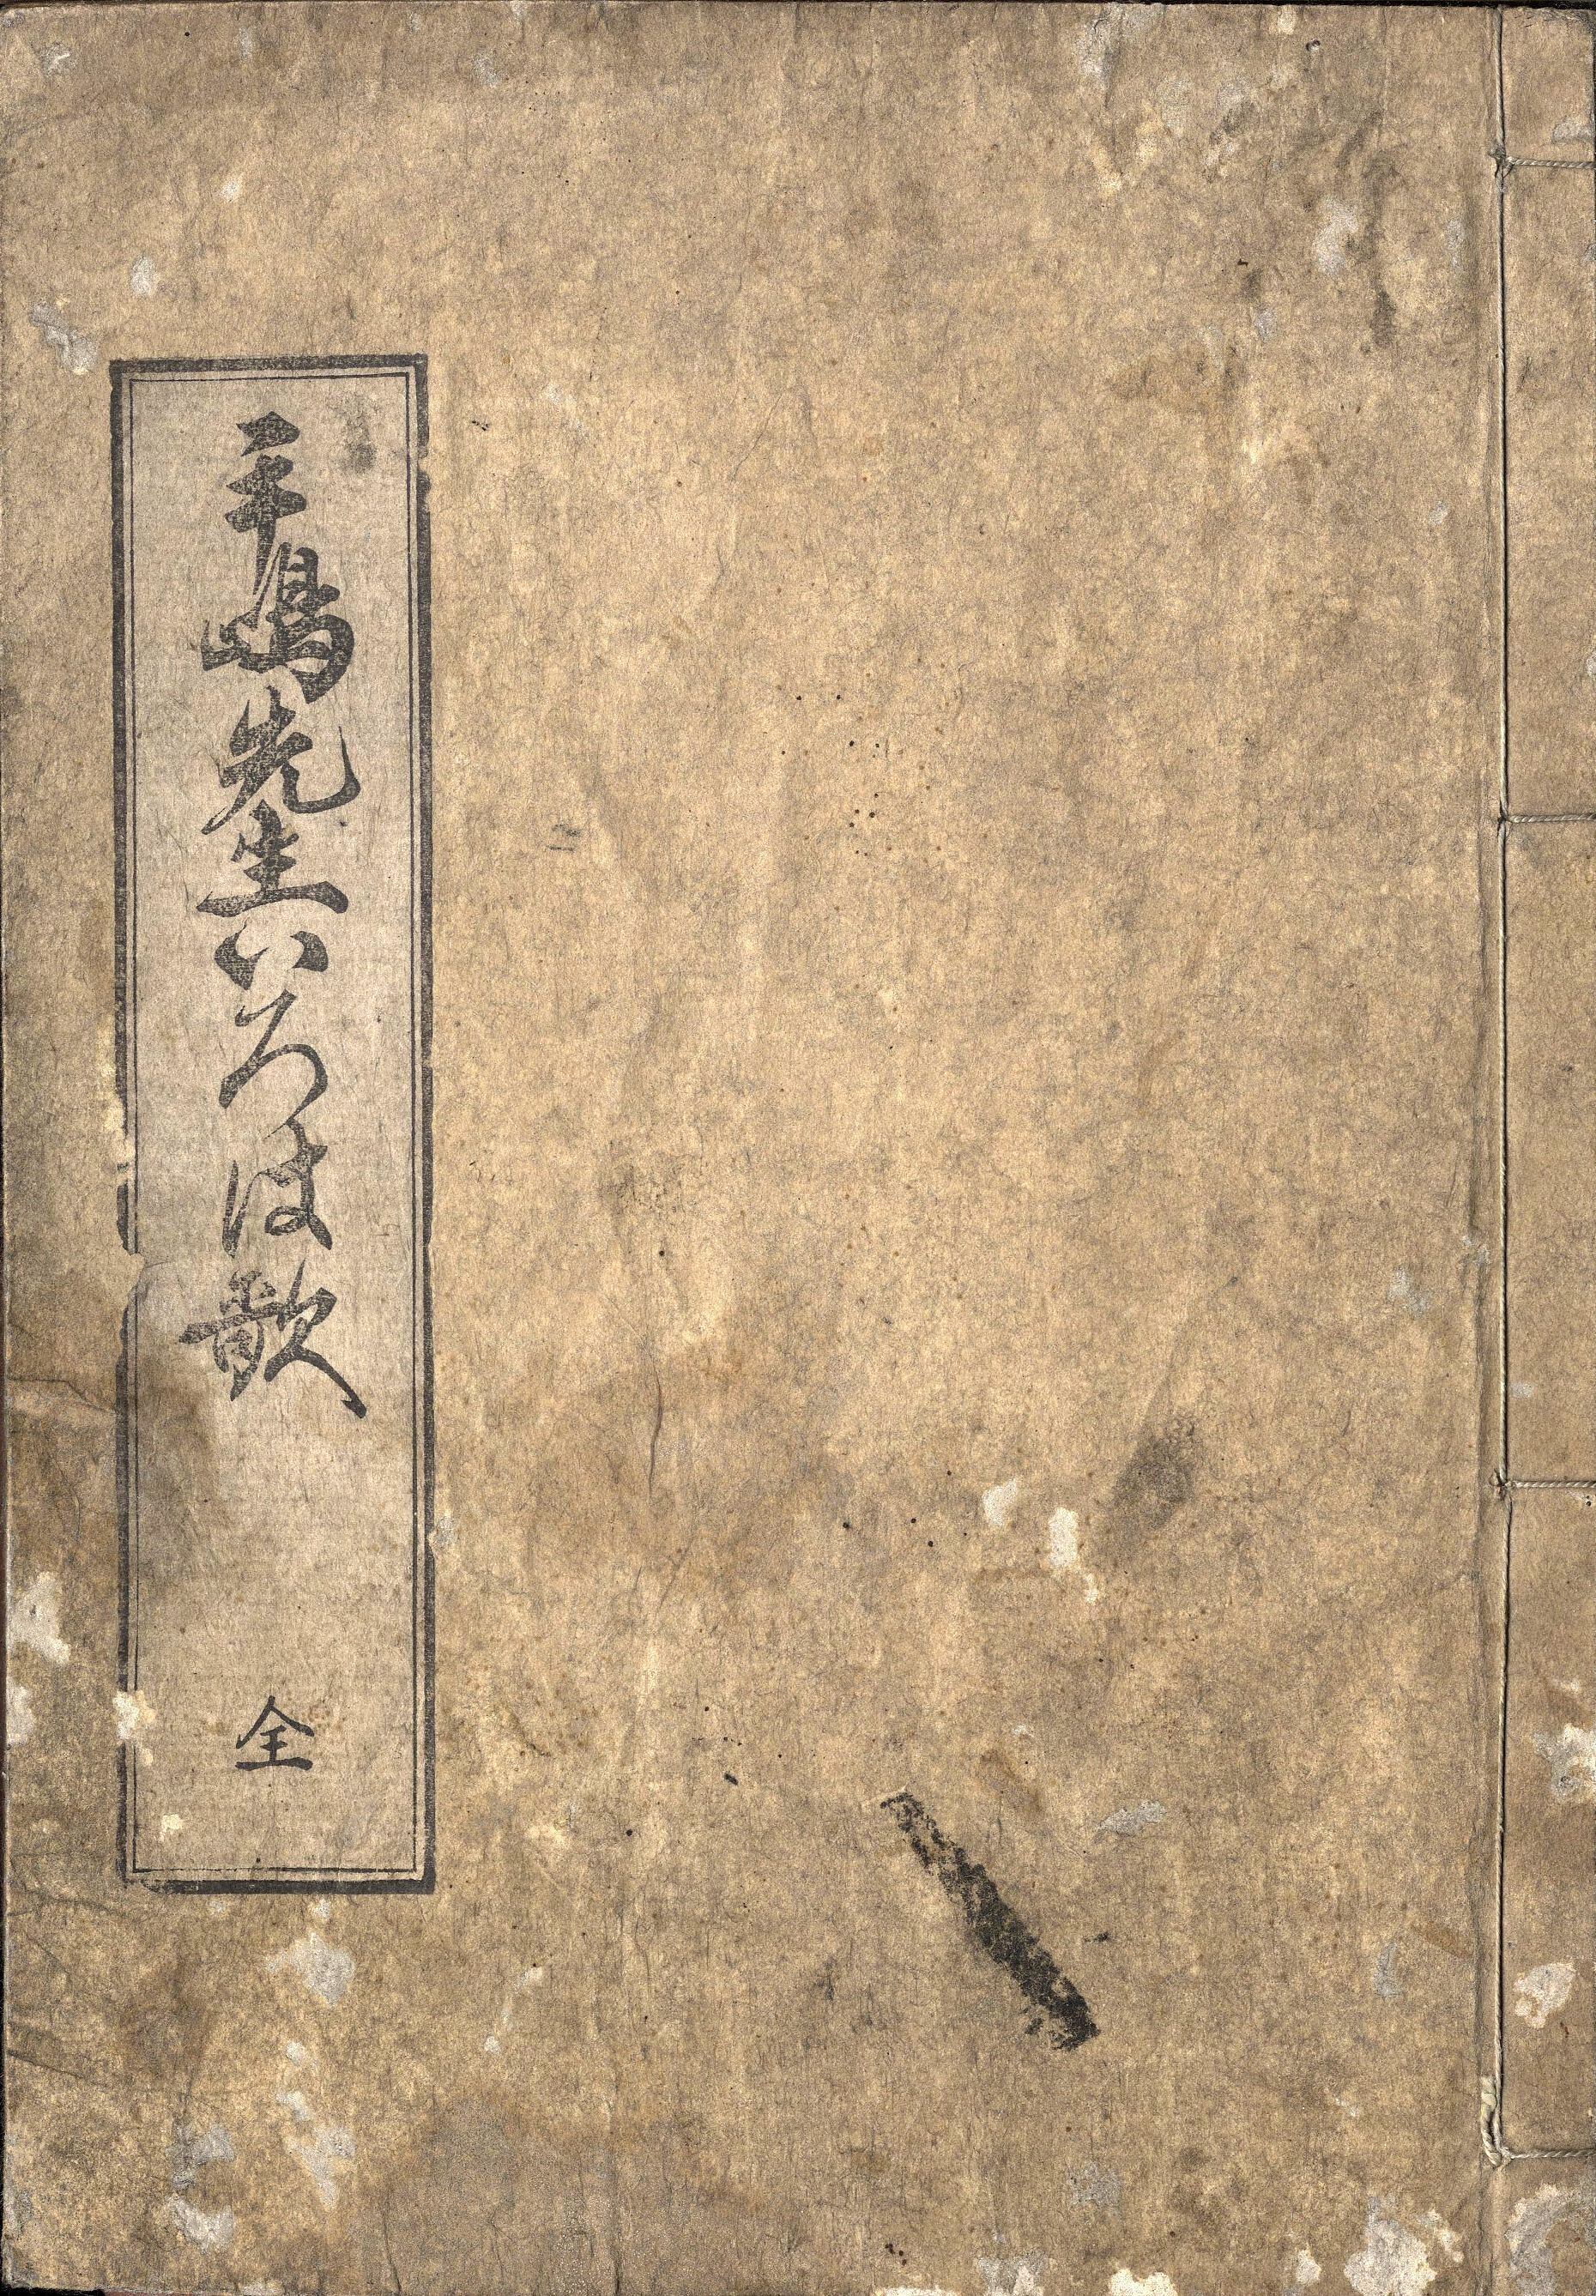 手嶋先生いろは歌 全